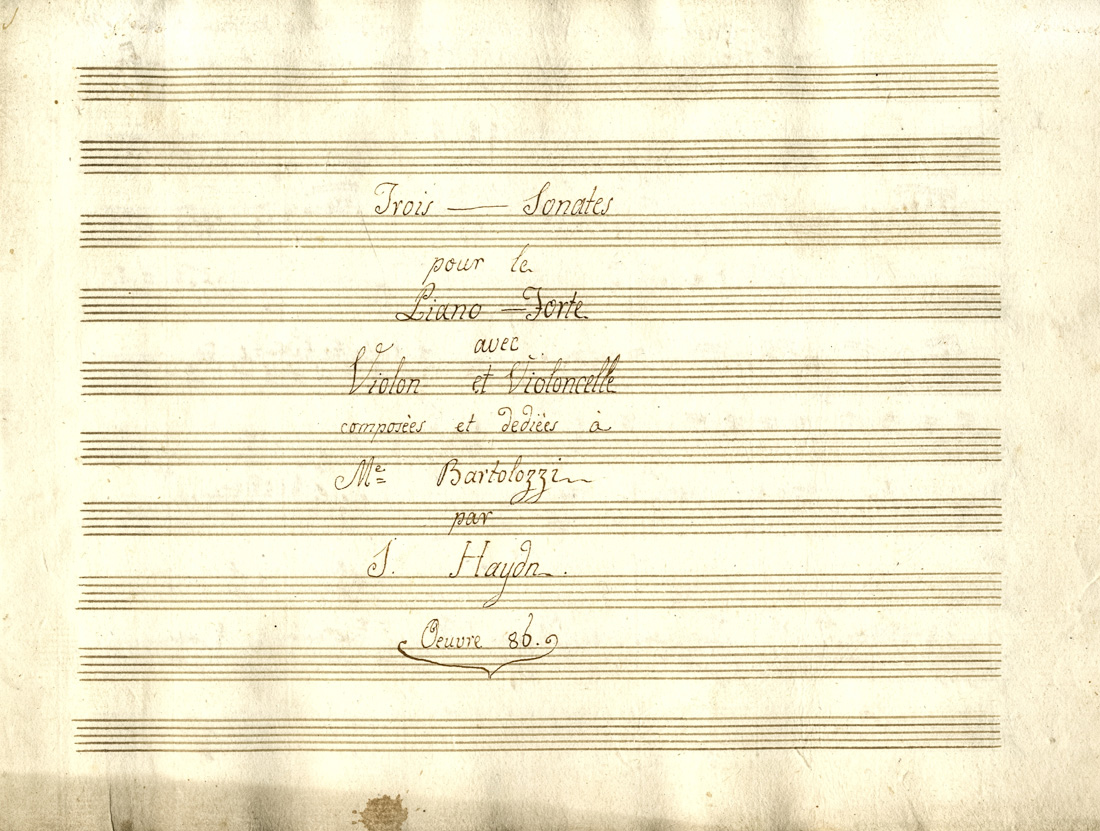 Trois — Sonates
pour le
Piano — Forte
avec
Violon et Violoncelle
composèes et dedièes à
Me Bartolozzi
par
J. Haydn.
Oeuvre 86.